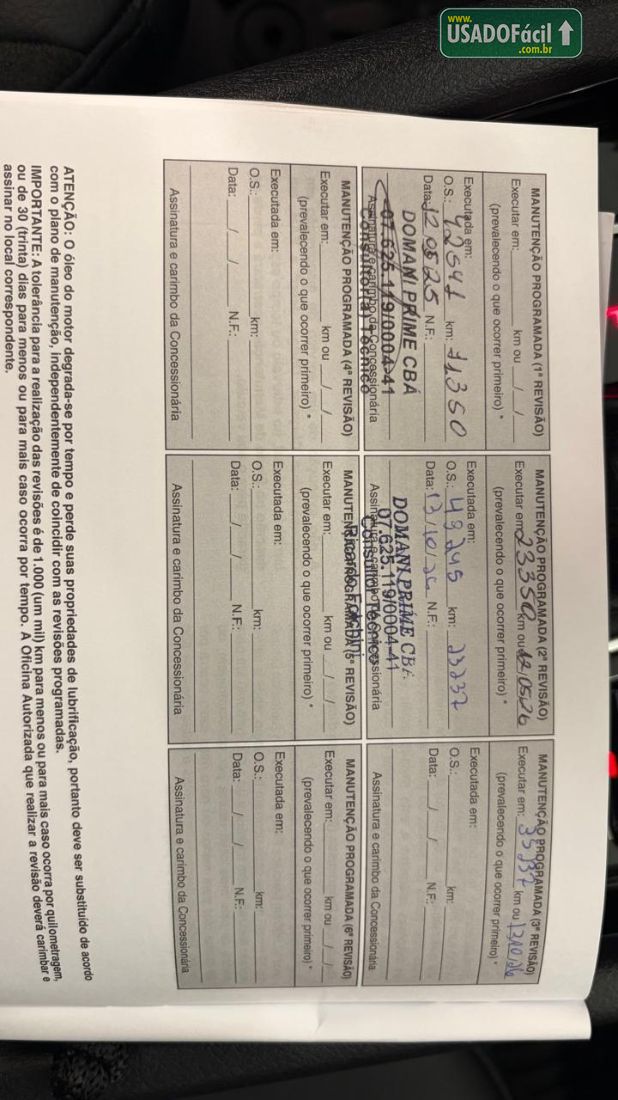 www.
USADOFácil
.com.br
MANUTENÇÃO PROGRAMADA (1ª REVISÃO)
Executar em:______ km ou __/__/__
(prevalecendo o que ocorrer primeiro) *
Executada em:
O.S.: 42541 km: 11.350
Data: 12/05/25 N.F.:
DOMANI PRIME CBA
07.625.119/0004-41
Assinatura e carimbo da Concessionária
Consultor(a) Técnico
MANUTENÇÃO PROGRAMADA (2ª REVISÃO)
Executar em: 23350 km ou 12/05/26
(prevalecendo o que ocorrer primeiro) *
Executada em:
O.S.: 49245 km: 23237
Data: 13/10/25 N.F.:
DOMANI PRIME CBA
07.625.119/0004-41
Assinatura e carimbo da Concessionária
Consultor Técnico
MANUTENÇÃO PROGRAMADA (3ª REVISÃO)
Executar em: 35237 km ou 13/10/26
(prevalecendo o que ocorrer primeiro) *
Executada em:
O.S.:______ km:
Data: __/__/__ N.F.:
Assinatura e carimbo da Concessionária
MANUTENÇÃO PROGRAMADA (4ª REVISÃO)
Executar em:______ km ou __/__/__
(prevalecendo o que ocorrer primeiro) *
Executada em:
O.S.:______ km:
Data: __/__/__ N.F.:
Assinatura e carimbo da Concessionária
Ricardo
MANUTENÇÃO PROGRAMADA (5ª REVISÃO)
Executar em:______ km ou __/__/__
(prevalecendo o que ocorrer primeiro) *
Executada em:
O.S.:______ km:
Data: __/__/__ N.F.:
Assinatura e carimbo da Concessionária
MANUTENÇÃO PROGRAMADA (6ª REVISÃO)
Executar em:______ km ou __/__/__
(prevalecendo o que ocorrer primeiro) *
Executada em:
O.S.:______ km:
Data: __/__/__ N.F.:
Assinatura e carimbo da Concessionária
ATENÇÃO: O óleo do motor degrada-se por tempo e perde suas propriedades de lubrificação, portanto deve ser substituído de acordo
com o plano de manutenção, independentemente de coincidir com as revisões programadas.
IMPORTANTE: A tolerância para a realização das revisões é de 1.000 (um mil) km para menos ou para mais caso ocorra por quilometragem,
ou de 30 (trinta) dias para menos ou para mais caso ocorra por tempo. A Oficina Autorizada que realizar a revisão deverá carimbar e
assinar no local correspondente.